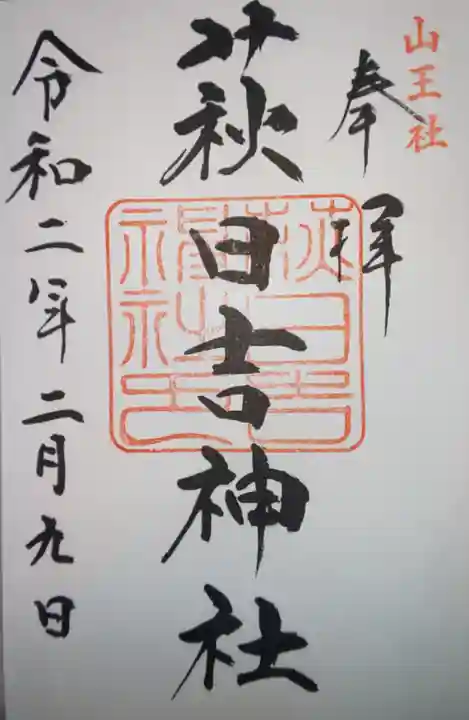 山王社
奉拝
萩日吉神社
萩日吉
神社之印
令和二年二月九日